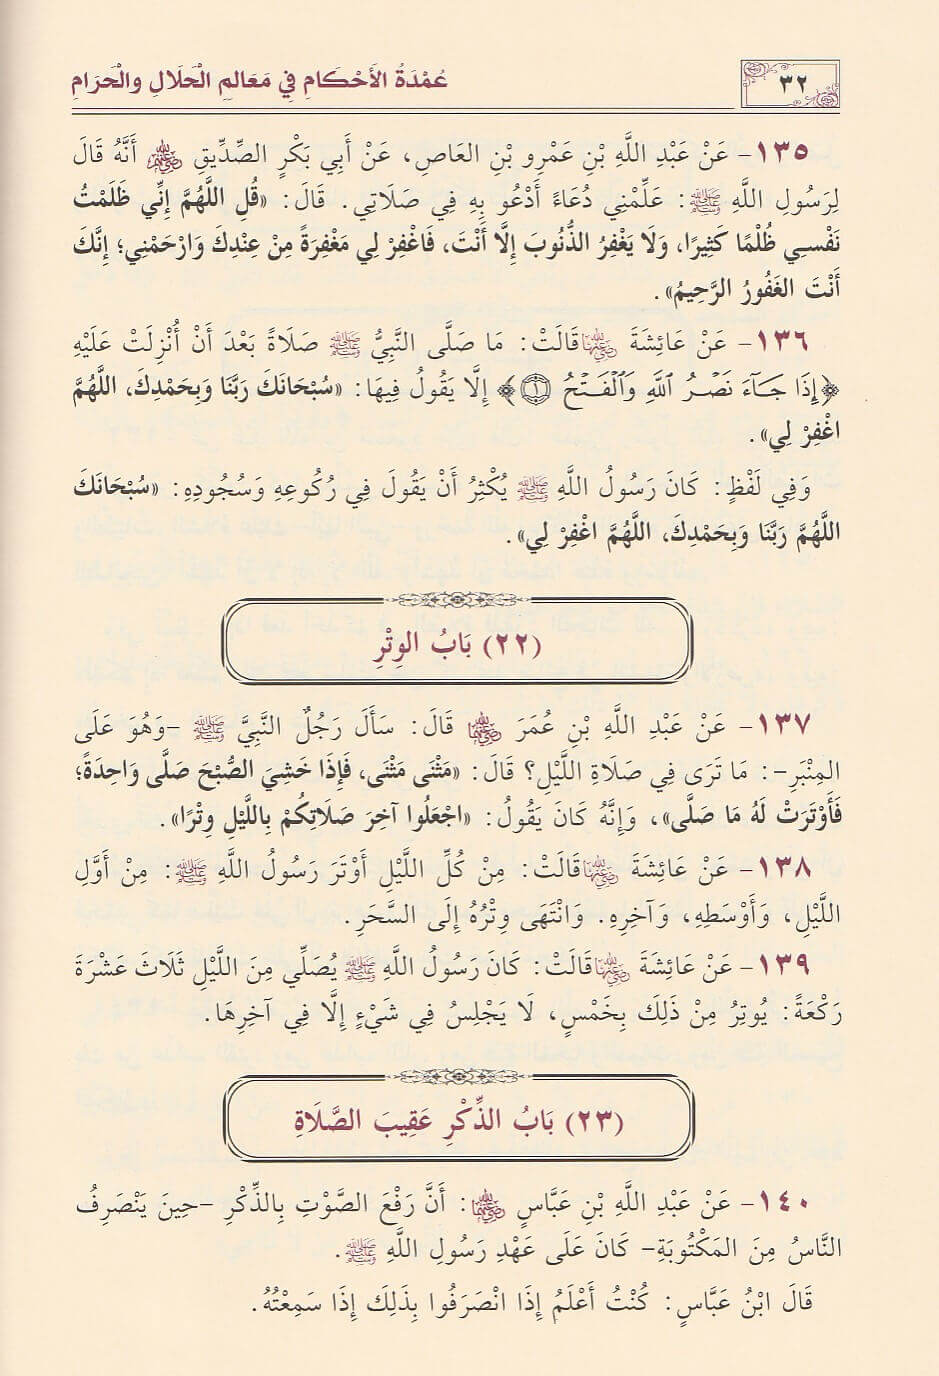 ٣٢
عُمْدَةُ الأَحْكَامِ فِي مَعَالِمِ الْحَلَالِ والْحَرَامِ
١٣٥- عَنْ عَبْدِ اللَّهِ بْنِ عَمْرِو بْنِ العَاصِ، عَنْ أَبِي بَكْرٍ الصِّدِّيقِ رضي الله عنهم أَنَّهُ قَالَ
لِرَسُولِ اللَّهِ ﷺ: عَلِّمْنِي دُعَاءً أَدْعُو بِهِ فِي صَلَاتِي. قَالَ: «قُلِ اللَّهُمَّ إِنِّي ظَلَمْتُ
نَفْسِي ظُلْمًا كَثِيرًا، وَلَا يَغْفِرُ الذُّنُوبَ إِلَّا أَنْتَ، فَاغْفِرْ لِي مَغْفِرَةً مِنْ عِنْدِكَ وَارْحَمْنِي؛ إِنَّكَ
أَنْتَ الغَفُورُ الرَّحِيمُ».
١٣٦- عَنْ عَائِشَةَ رضي الله عنها قَالَتْ: مَا صَلَّى النَّبِيُّ ﷺ صَلَاةً بَعْدَ أَنْ أُنْزِلَتْ عَلَيْهِ
﴿إِذَا جَآءَ نَصۡرُ ٱللَّهِ وَٱلۡفَتۡحُ ١﴾ إِلَّا يَقُولُ فِيهَا: «سُبْحَانَكَ رَبَّنَا وَبِحَمْدِكَ، اللَّهُمَّ
اغْفِرْ لِي».
وَفِي لَفْظٍ: كَانَ رَسُولُ اللَّهِ ﷺ يُكْثِرُ أَنْ يَقُولَ فِي رُكُوعِهِ وَسُجُودِهِ: «سُبْحَانَكَ
اللَّهُمَّ رَبَّنَا وَبِحَمْدِكَ، اللَّهُمَّ اغْفِرْ لِي».
(٢٢) بَابُ الوِتْرِ
١٣٧- عَنْ عَبْدِ اللَّهِ بْنِ عُمَرَ رضي الله عنهما قَالَ: سَأَلَ رَجُلٌ النَّبِيَّ ﷺ -وَهُوَ عَلَى
المِنْبَرِ-: مَا تَرَى فِي صَلَاةِ اللَّيْلِ؟ قَالَ: «مَثْنَى مَثْنَى، فَإِذَا خَشِيَ الصُّبْحَ صَلَّى وَاحِدَةً؛
فَأَوْتَرَتْ لَهُ مَا صَلَّى»، وَإِنَّهُ كَانَ يَقُولُ: «اجْعَلُوا آخِرَ صَلَاتِكُمْ بِاللَّيْلِ وِتْرًا».
١٣٨- عَنْ عَائِشَةَ رضي الله عنها قَالَتْ: مِنْ كُلِّ اللَّيْلِ أَوْتَرَ رَسُولُ اللَّهِ ﷺ: مِنْ أَوَّلِ
اللَّيْلِ، وَأَوْسَطِهِ، وَآخِرِهِ. وَانْتَهَى وِتْرُهُ إِلَى السَّحَرِ.
١٣٩- عَنْ عَائِشَةَ رضي الله عنها قَالَتْ: كَانَ رَسُولُ اللَّهِ ﷺ يُصَلِّي مِنَ اللَّيْلِ ثَلَاثَ عَشْرَةَ
رَكْعَةً: يُوتِرُ مِنْ ذَلِكَ بِخَمْسٍ، لَا يَجْلِسُ فِي شَيْءٍ إِلَّا فِي آخِرِهَا.
(٢٣) بَابُ الذِّكْرِ عَقِيبَ الصَّلَاةِ
١٤٠- عَنْ عَبْدِ اللَّهِ بْنِ عَبَّاسٍ رضي الله عنهما: أَنَّ رَفْعَ الصَّوْتِ بِالذِّكْرِ -حِينَ يَنْصَرِفُ
النَّاسُ مِنَ المَكْتُوبَةِ- كَانَ عَلَى عَهْدِ رَسُولِ اللَّهِ ﷺ.
قَالَ ابْنُ عَبَّاسٍ: كُنْتُ أَعْلَمُ إِذَا انْصَرَفُوا بِذَلِكَ إِذَا سَمِعْتُهُ.